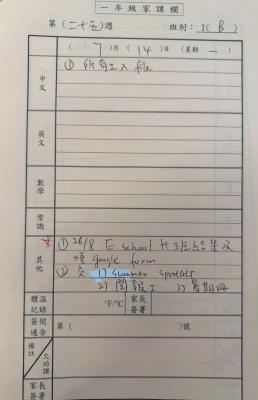 一年級家課欄
第(二十五)週 班別：1(B)
(7)月(14)日(星期一)
中文
① 所有工入 file
英文
數學
常識
其他
① 26/8 E school 升班結果及
填 google form
② 交 1) summer
2) 閱報工 3) 暑期冊
體溫記錄 °F/°C 家長簽署
簽閱通告 第( )號
備註 欠功課
家長簽署